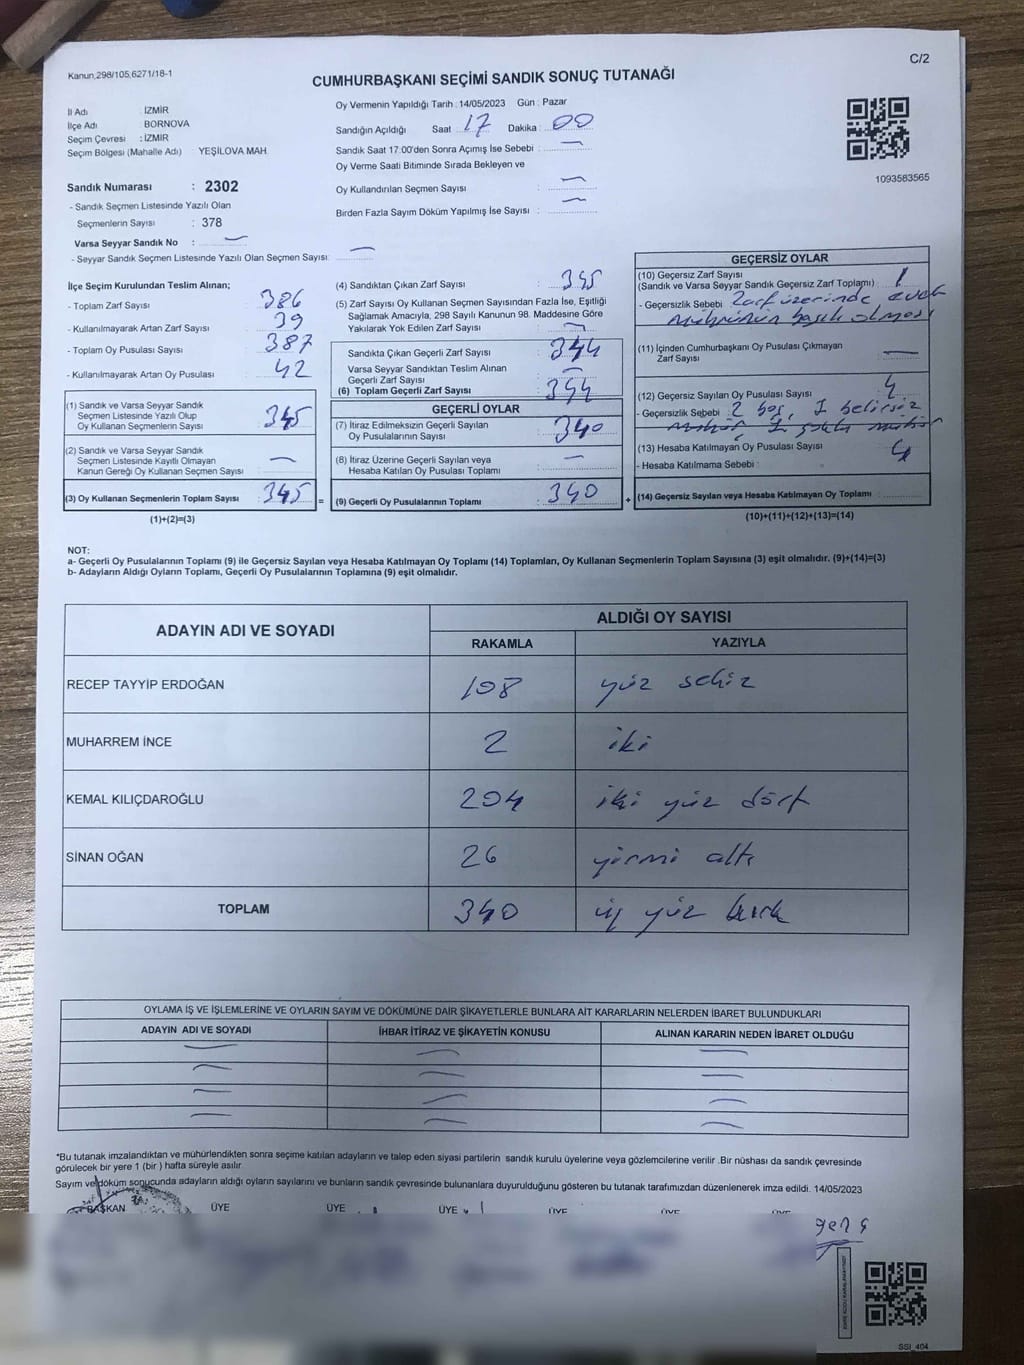 Kanun,298/105,6271/18-1
C/2
CUMHURBAŞKANI SEÇİMİ SANDIK SONUÇ TUTANAĞI
İl Adı : İZMİR
İlçe Adı : BORNOVA
Seçim Çevresi : İZMİR
Seçim Bölgesi (Mahalle Adı) YEŞİLOVA MAH.
Oy Vermenin Yapıldığı Tarih : 14/05/2023 Gün : Pazar
Sandığın Açıldığı Saat : 17 Dakika : 00
Sandık Saat 17:00'den Sonra Açımış İse Sebebi : —
Oy Verme Saati Bitiminde Sırada Bekleyen ve
Oy Kullandırılan Seçmen Sayısı : —
Birden Fazla Sayım Döküm Yapılmış İse Sayısı : —
1093583565
Sandık Numarası : 2302
- Sandık Seçmen Listesinde Yazılı Olan
Seçmenlerin Sayısı : 378
Varsa Seyyar Sandık No : —
- Seyyar Sandık Seçmen Listesinde Yazılı Olan Seçmen Sayısı: —
İlçe Seçim Kurulundan Teslim Alınan;
- Toplam Zarf Sayısı : 386
- Kullanılmayarak Artan Zarf Sayısı : 39
- Toplam Oy Pusulası Sayısı : 387
- Kullanılmayarak Artan Oy Pusulası : 42
(1) Sandık ve Varsa Seyyar Sandık
Seçmen Listesinde Yazılı Olup
Oy Kullanan Seçmenlerin Sayısı : 345
(2) Sandık ve Varsa Seyyar Sandık
Seçmen Listesinde Kayıtlı Olmayan
Kanun Gereği Oy Kullanan Seçmen Sayısı : —
(3) Oy Kullanan Seçmenlerin Toplam Sayısı : 345 =
(1)+(2)=(3)
(4) Sandıktan Çıkan Zarf Sayısı : 345
(5) Zarf Sayısı Oy Kullanan Seçmen Sayısından Fazla İse, Eşitliği
Sağlamak Amacıyla, 298 Sayılı Kanunun 98. Maddesine Göre
Yakılarak Yok Edilen Zarf Sayısı : —
Sandıkta Çıkan Geçerli Zarf Sayısı : 344
Varsa Seyyar Sandıktan Teslim Alınan
Geçerli Zarf Sayısı : —
(6) Toplam Geçerli Zarf Sayısı : 344
GEÇERLİ OYLAR
(7) İtiraz Edilmeksizin Geçerli Sayılan
Oy Pusulalarının Sayısı : 340
(8) İtiraz Üzerine Geçerli Sayılan veya
Hesaba Katılan Oy Pusulası Toplamı : —
(9) Geçerli Oy Pusulalarının Toplamı : 340 +
GEÇERSİZ OYLAR
(10) Geçersiz Zarf Sayısı
(Sandık ve Varsa Seyyar Sandık Geçersiz Zarf Toplamı) : 1
- Geçersizlik Sebebi : Zarf üzerinde evet
mührünün basılı olması
(11) İçinden Cumhurbaşkanı Oy Pusulası Çıkmayan
Zarf Sayısı : —
(12) Geçersiz Sayılan Oy Pusulası Sayısı : 4
- Geçersizlik Sebebi : 2 boş, 1 belirsiz
mühür, 1
(13) Hesaba Katılmayan Oy Pusulası Sayısı : 4
- Hesaba Katılmama Sebebi :
(14) Geçersiz Sayılan veya Hesaba Katılmayan Oy Toplamı :
(10)+(11)+(12)+(13)=(14)
NOT:
a- Geçerli Oy Pusulalarının Toplamı (9) ile Geçersiz Sayılan veya Hesaba Katılmayan Oy Toplamı (14) Toplamları, Oy Kullanan Seçmenlerin Toplam Sayısına (3) eşit olmalıdır. (9)+(14)=(3)
b- Adayların Aldığı Oyların Toplamı, Geçerli Oy Pusulalarının Toplamına (9) eşit olmalıdır.
ADAYIN ADI VE SOYADI
ALDIĞI OY SAYISI
RAKAMLA YAZIYLA
RECEP TAYYİP ERDOĞAN 108 yüz sekiz
MUHARREM İNCE 2 iki
KEMAL KILIÇDAROĞLU 204 iki yüz dört
SİNAN OĞAN 26 yirmi altı
TOPLAM 340 üç yüz kırk
OYLAMA İŞ VE İŞLEMLERİNE VE OYLARIN SAYIM VE DÖKÜMÜNE DAİR ŞİKAYETLERLE BUNLARA AİT KARARLARIN NELERDEN İBARET BULUNDUKLARI
ADAYIN ADI VE SOYADI İHBAR İTİRAZ VE ŞİKAYETİN KONUSU ALINAN KARARIN NEDEN İBARET OLDUĞU
*Bu tutanak imzalandıktan ve mühürlendikten sonra seçime katılan adayların ve talep eden siyasi partilerin sandık kurulu üyelerine veya gözlemcilerine verilir .Bir nüshası da sandık çevresinde
görülecek bir yere 1 (bir ) hafta süreyle asılır.
Sayım ve döküm sonucunda adayların aldığı oyların sayılarını ve bunların sandık çevresinde bulunanlara duyurulduğunu gösteren bu tutanak tarafımızdan düzenlenerek imza edildi. 14/05/2023
BAŞKAN ÜYE ÜYE ÜYE ÜYE ÜYE ÜYE
SSİ_404